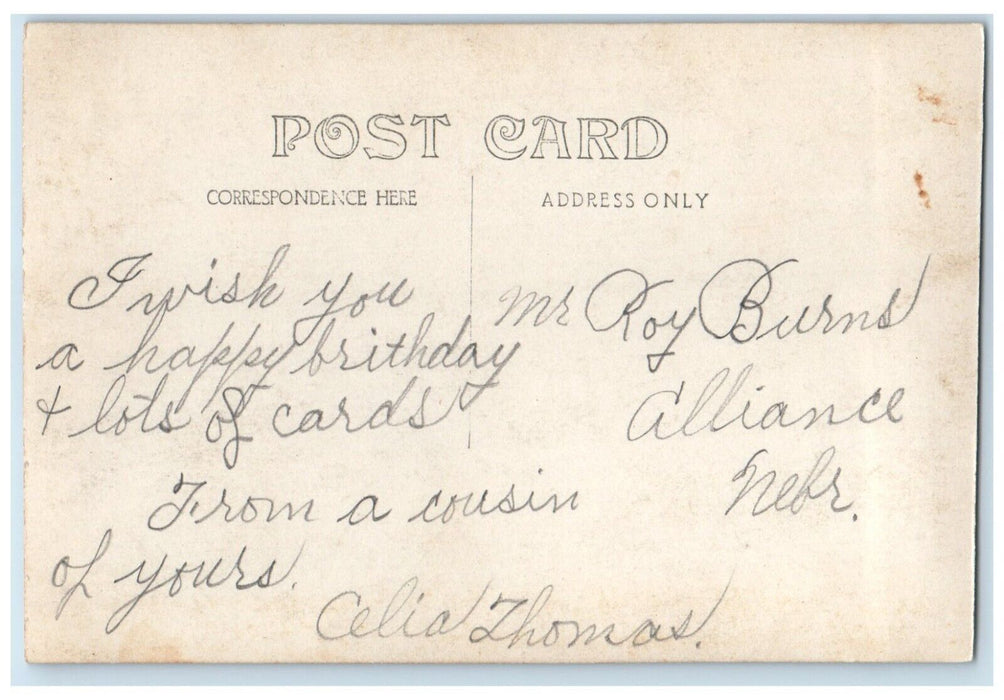 POST CARD
CORRESPONDENCE HERE
ADDRESS ONLY
I wish you
a happy brithday
+ lots of cards
From a cousin
of yours.
Celia Thomas.
Mr Roy Burns
Alliance
Nebr.